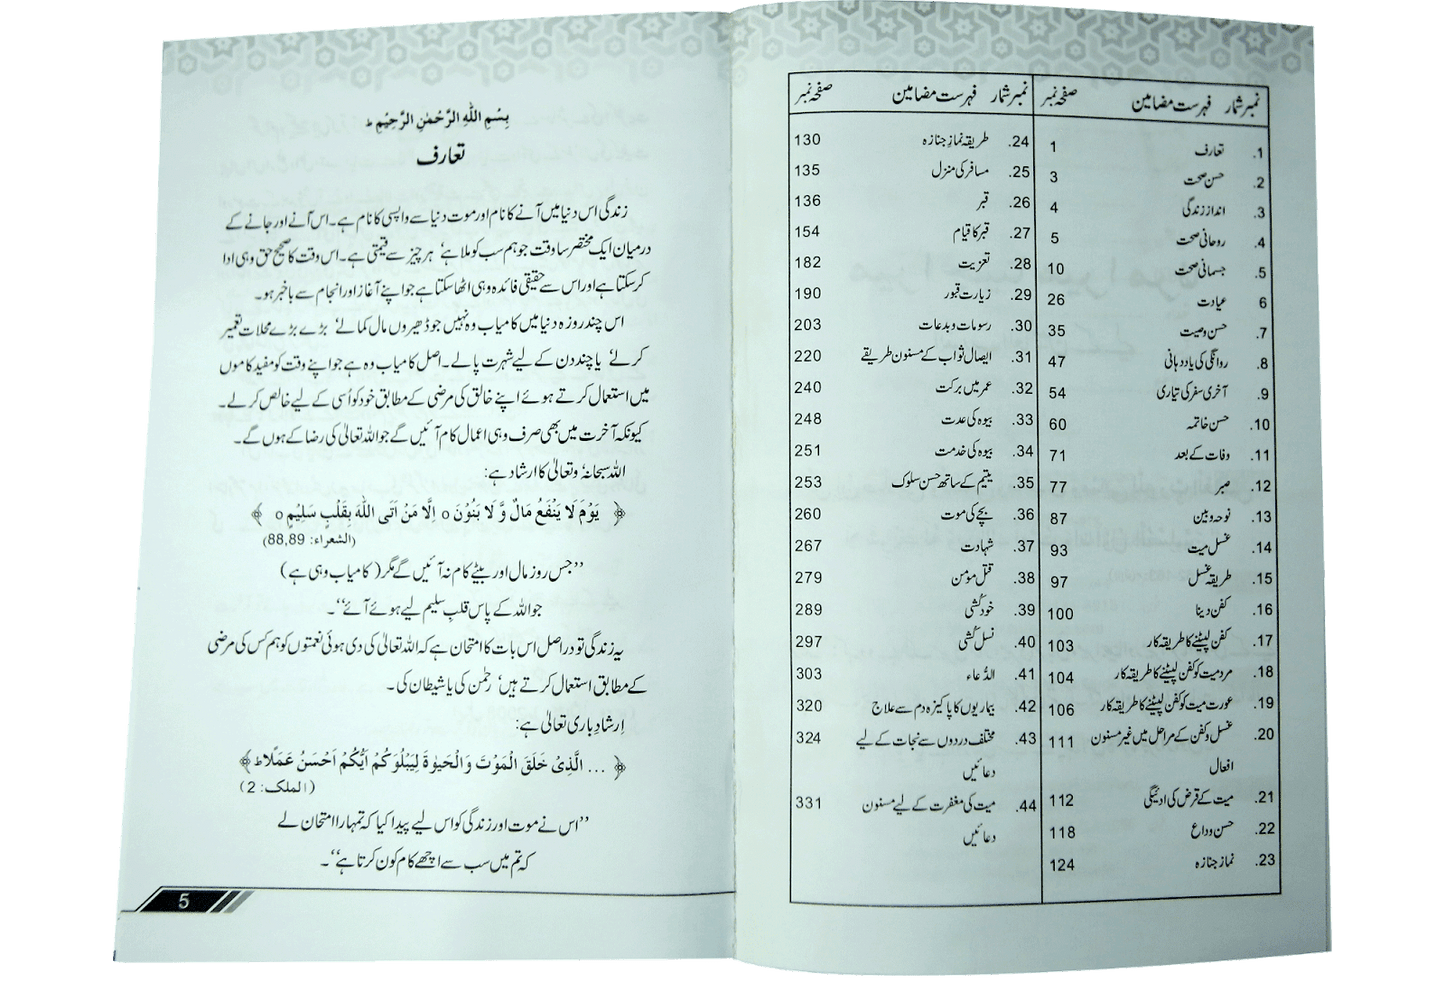 نمبر شمار فہرست مضامین صفحہ نمبر
1. تعارف 1
2. حسن صحت 3
3. انداز زندگی 4
4. روحانی صحت 5
5. جسمانی صحت 10
6 عیادت 26
7. حسن وصیت 35
8. روانگی کی یاد دہانی 47
9. آخری سفر کی تیاری 54
10. حسن خاتمہ 60
11. وفات کے بعد 71
12. صبر 77
13. نوحہ و بین 87
14. غسل میت 93
15. طریقہ غسل 97
16. کفن دینا 100
17. کفن لپیٹنے کا طریقہ کار 103
18. مرد میت کو کفن لپیٹنے کا طریقہ کار 104
19. عورت میت کو کفن لپیٹنے کا طریقہ کار 106
20. غسل و کفن کے مراحل میں غیر مسنون 111
افعال
21. میت کے قرض کی ادئیگی 112
22. حسن وداع 118
23. نماز جنازہ 124
نمبر شمار فہرست مضامین صفحہ نمبر
24. طریقہ نمازِ جنازہ 130
25. مسافر کی منزل 135
26. قبر 136
27. قبر کا قیام 154
28. تعزیت 182
29. زیارت قبور 190
30. رسومات و بدعات 203
31. ایصال ثواب کے مسنون طریقے 220
32. عمر میں برکت 240
33. بیوہ کی عدت 248
34. بیوہ کی خدمت 251
35. یتیم کے ساتھ حسن سلوک 253
36. بچے کی موت 260
37. شہادت 267
38. قتل مومن 279
39. خود کُشی 289
40. نسل کُشی 297
41. الدُّعاء 303
42. بیماریوں کا پاکیزہ دم سے علاج 320
43. مختلف دردوں سے نجات کے لیے 324
دعائیں
44. میت کی مغفرت کے لیے مسنون 331
دعائیں
بِسْمِ اللّٰهِ الرَّحْمٰنِ الرَّحِيْمِ ط
تعارف
زندگی اس دنیا میں آنے کا نام اور موت دنیا سے واپسی کا نام ہے۔ اس آنے اور جانے کے
درمیان ایک مختصر سا وقت جو ہم سب کو ملا ہے‘ ہر چیز سے قیمتی ہے۔ اس وقت کا صحیح حق وہی ادا
کر سکتا ہے اور اس سے حقیقی فائدہ وہی اٹھا سکتا ہے جو اپنے آغاز اور انجام سے باخبر ہو۔
اس چند روزہ دنیا میں کامیاب وہ نہیں جو ڈھیروں مال کمالے‘ بڑے بڑے محلات تعمیر
کرلے‘ یا چند دن کے لیے شہرت پالے۔ اصل کامیاب وہ ہے جو اپنے وقت کو مفید کاموں
میں استعمال کرتے ہوئے اپنے خالق کی مرضی کے مطابق خود کو اُسی کے لیے خالص کرلے۔
کیونکہ آخرت میں بھی صرف وہی اعمال کام آئیں گے جو اللہ تعالیٰ کی رضا کے ہوں گے۔
اللہ سبحانہٗ و تعالیٰ کا ارشاد ہے:
﴿ يَوْمَ لَا يَنْفَعُ مَالٌ وَّ لَا بَنُوْنَ o اِلَّا مَنْ اَتَى اللّٰهَ بِقَلْبٍ سَلِيْمٍ o ﴾
(الشعراء: 88,89)
’’جس روز مال اور بیٹے کام نہ آئیں گے مگر (کامیاب وہی ہے)
جو اللہ کے پاس قلبِ سلیم لیے ہوئے آئے‘‘۔
یہ زندگی تو دراصل اس بات کا امتحان ہے کہ اللہ تعالیٰ کی دی ہوئی نعمتوں کو ہم کس کی مرضی
کے مطابق استعمال کرتے ہیں‘ رحمٰن کی یا شیطان کی۔
اِرشادِ باری تعالیٰ ہے:
﴿ ... الَّذِىْ خَلَقَ الْمَوْتَ وَالْحَيٰوةَ لِيَبْلُوَكُمْ اَيُّكُمْ اَحْسَنُ عَمَلًا ط ﴾
(الملک: 2)
’’اس نے موت اور زندگی کو اس لیے پیدا کیا کہ تمہارا امتحان لے
کہ تم میں سب سے اچھے کام کون کرتا ہے‘‘۔
5